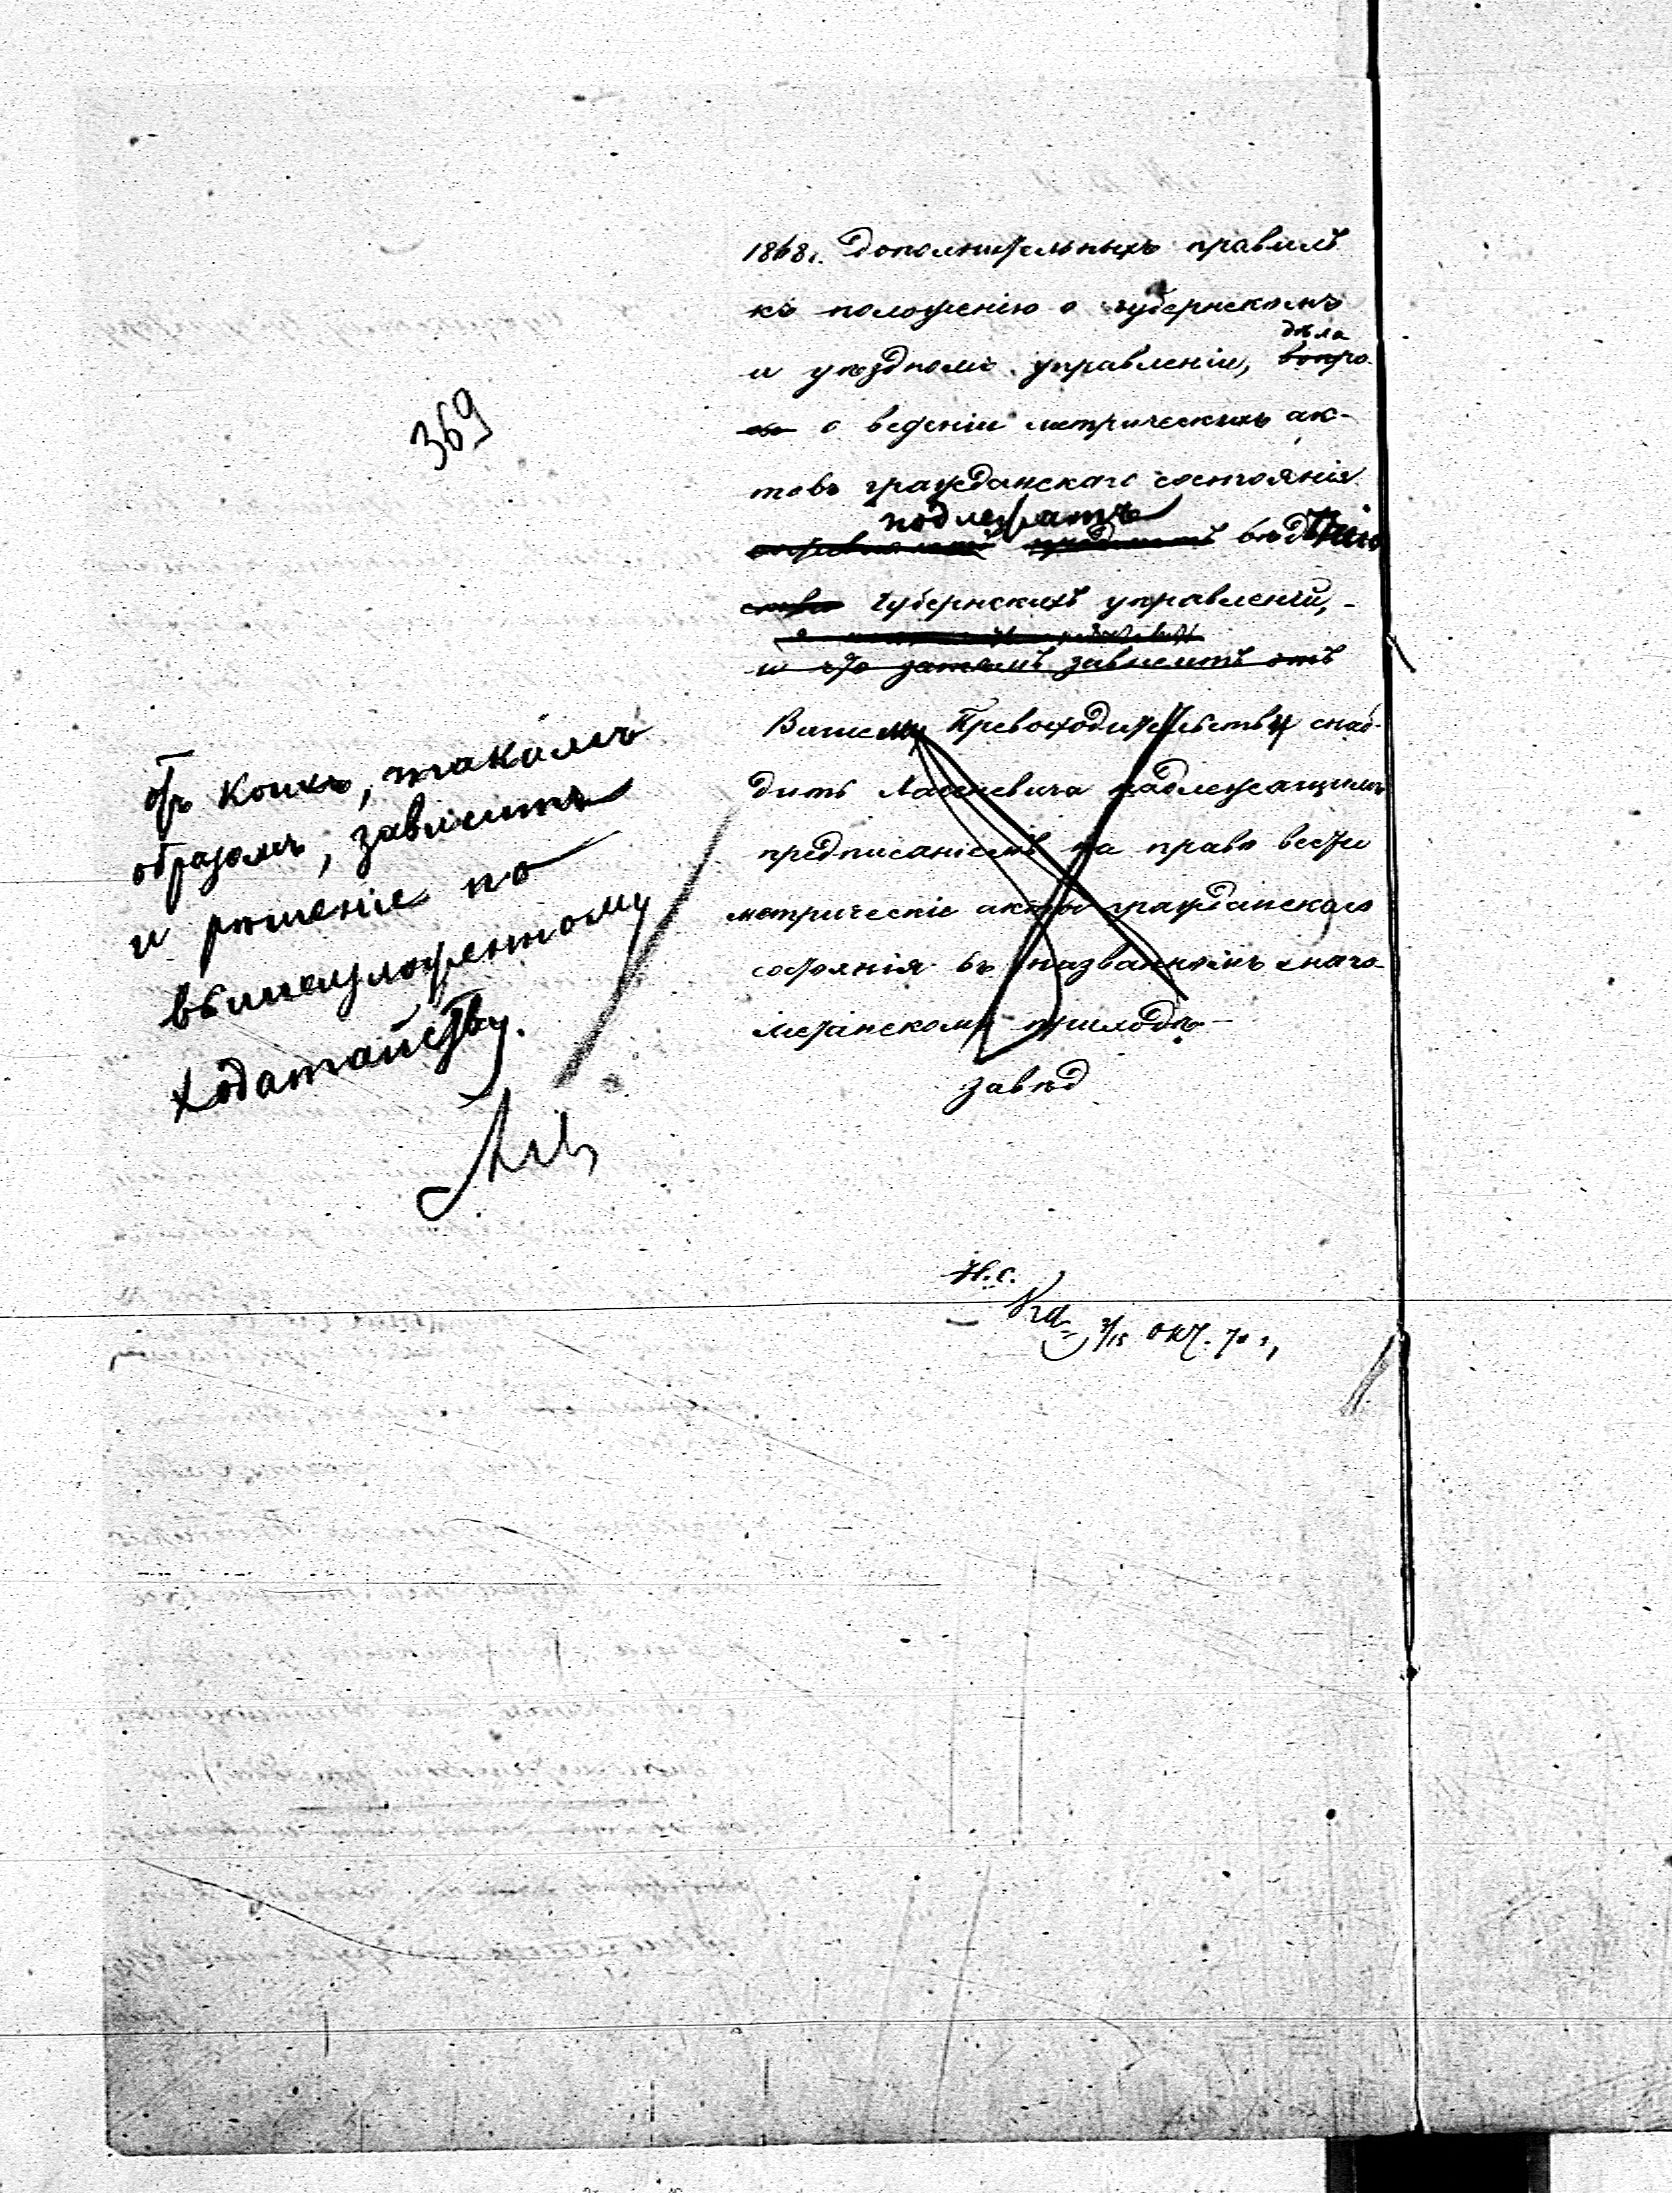 369
1868 г. Дополнительныхъ правилъ
къ положенію о губернскомъ
дѣла
и уѣздномъ управленіи, вопро-
сы о веденіи метрическихъ ак-
товъ гражданскаго состоянія
подлежатъ
вѣдѣнію
ства губернскихъ управленій,
и что затѣмъ зависитъ отъ
Вашему Превосходительству снаб-
дить Ласкевича надлежащимъ
предписаніемъ на право вести
метрическіе акты гражданскаго
состоянія въ названномъ инаго-
приходѣ
завѣд
отъ коихъ, такимъ
образомъ, зависитъ
и рѣшеніе по
вышеизложенному
ходатайству.
Н. С.
3/15 окт. 70 г.